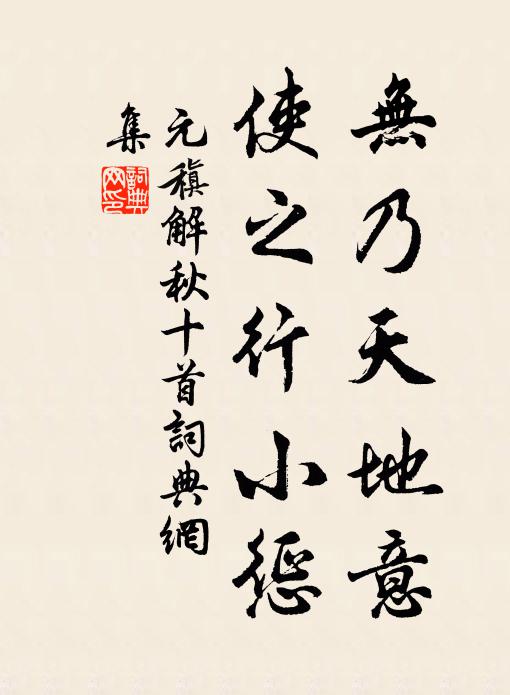 無乃天地意
使之行小懲
元稹解秋十首詞典網
集
詞典
网印